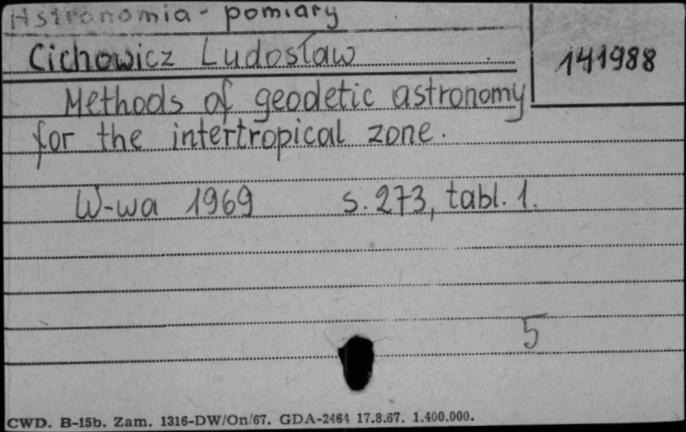 Astronomia - pomiary
Cichowicz Ludosław
141988
Methods of geodetic astronomy
for the intertropical zone.
W-wa 1969 s. 273, tabl. 1.
5
CWD. B-15b. Zam. 1316-DW/On/67. GDA-2464 17.8.67. 1.400.000.